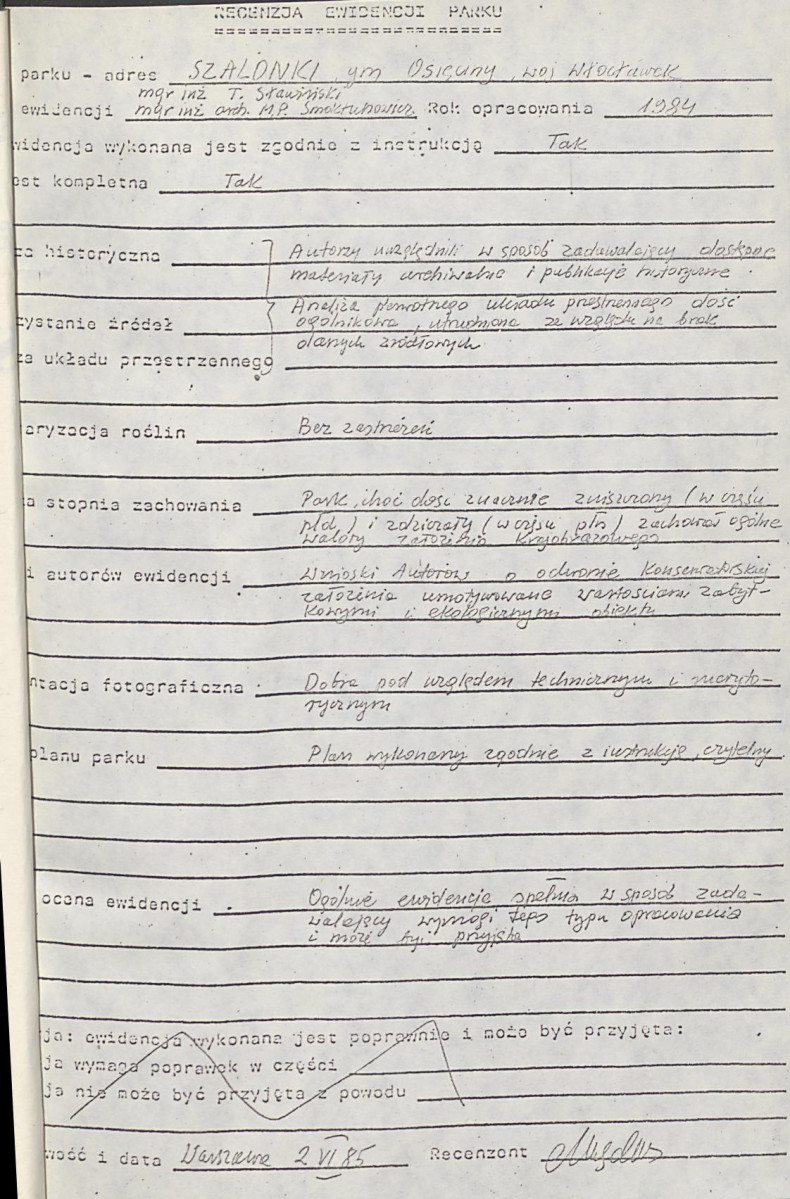 RECENZJA EWIDENCJI PARKU
parku - adres SZALONKI, gm Osięciny, woj Włocławek
mgr inż T. Stawiński
ewidencji mgr inż arch. M.P. Smoktunowicz Rok opracowania 1984
widencja wykonana jest zgodnie z instrukcją Tak
est kompletna Tak
za historyczna Autorzy uwzględnili w sposób zadawalający dostępne
materiały archiwalne i publikacje historyczne.
Analiza pierwotnego układu przestrzennego dość
zystanie źródeł ogólnikowa, utrudniona ze względu na brak
danych źródłowych
za układu przestrzennego
aryzacja roślin Bez zastrzeżeń
a stopnia zachowania Park, choć dość znacznie zniszczony (w części
płd.) i zdziczały (w części płn) zachował ogólne
walory założenia krajobrazowego
i autorów ewidencji Wnioski Autorów o ochronie konserwatorskiej
założenia umotywowane wartościami zabyt-
kowymi i ekologicznymi obiektu
ntacja fotograficzna Dobra pod względem technicznym i meryto-
rycznym
planu parku Plan wykonany zgodnie z instrukcją, czytelny.
ocena ewidencji Ogólnie ewidencja spełnia w sposób zada-
walający wymogi tego typu opracowania
i może być przyjęta
ja: ewidencja wykonana jest poprawnie i może być przyjęta:
ja wymaga poprawek w części
ja nie może być przyjęta z powodu
wość i data Warszawa 2 VI 85 Recenzent